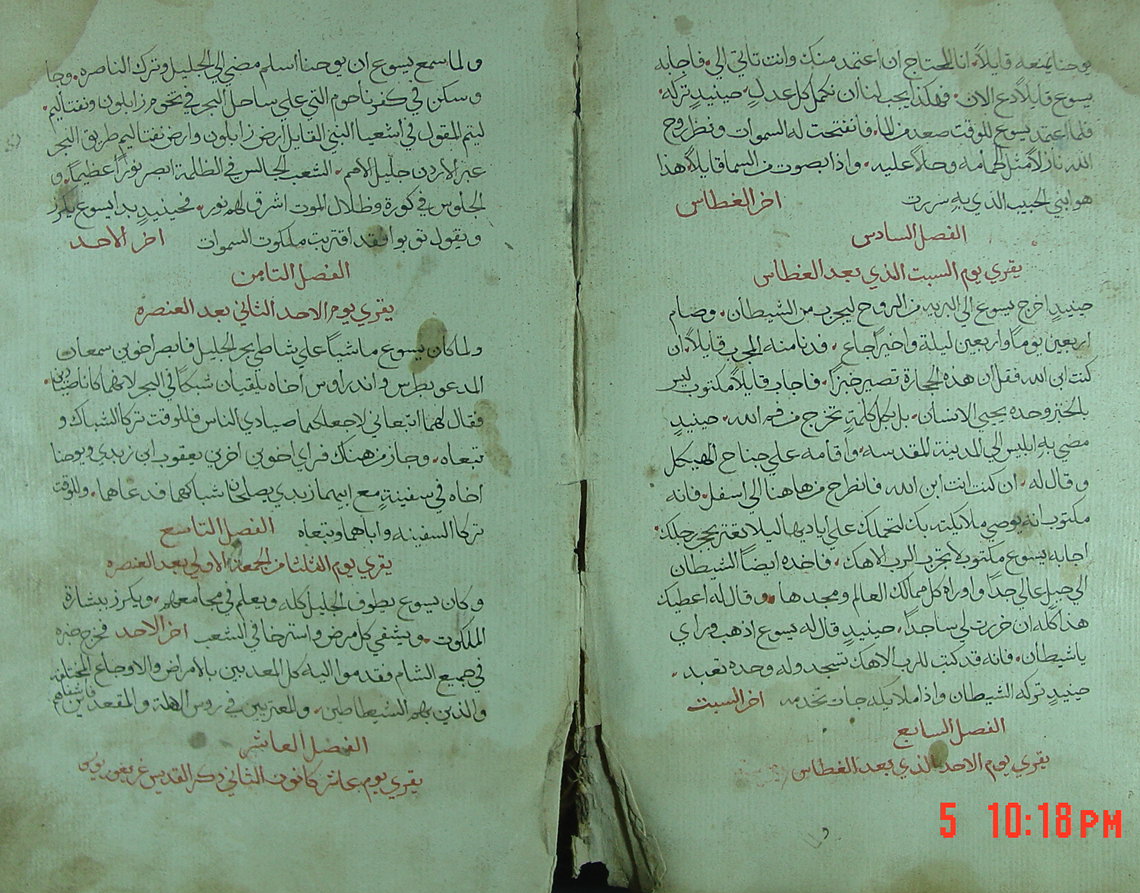 يوحنا يمنعه قايلاً. انا المحتاج ان اعتمد منك وانت تاتي الي. فاجابه
يسوع قايلاً دع الان. فهكذا يجب لنا ان نكمل كل عدلٍ. حينيدٍ تركه.
فلما اعتمد يسوع للوقت صعد من الما. فانفتحت له السموات ونظر روح
الله نازلاً مثل الحمامه وحالاً عليه. واذا بصوت من السما قايلاً. هذا
هو ابني الحبيب الذي به سررت اخر الغطاس
الفصل السادس
يقري يوم السبت الذي بعد الغطاس
حينيدٍ اخرج يسوع الي البريه من الروح ليجرب من الشيطان. وصام
اربعين يوماً واربعين ليلة واخيراً جاع. فدنا منه المجرب قايلاً. ان
كنت ابن الله فقل ان هذه الحجارة تصير خبزاً. فاجاب قايلاً مكتوب ليس
بالخبز وحده يحيي الانسان. بل بكل كلمةٍ تخرج من فم الله. حينيدٍ
مضي به ابليس الي المدينة المقدسه. واقامه علي جناح الهيكل
وقال له. ان كنت انت ابن الله فانطرح من هاهنا الي اسفل. فانه
مكتوب انه يوصي ملايكته بك لتحملك علي اياديها ليلا تعثر بحجر رجلك.
اجابه يسوع مكتوب لا تجرب الرب الاهك. فاخده ايضاً الشيطان
الي جبل عالي جدا واوراه كل ممالك العالم ومجدها. وقال له اعطيك
هذا كله ان خررت لي ساجداً. حينيدٍ قال له يسوع اذهب وراي
ياشيطان. فانه قد كتب للرب الاهك تسجد وله وحده تعبد.
حينيدٍ تركه الشيطان واذا ملايكه جات تخدمه اخر السبت
الفصل السابع
يقري يوم الاحد الذي بعد الغطاس
ولما سمع يسوع ان يوحنا اسلم مضي الي الجليل وترك الناصره. وجا
وسكن في كفرناحوم التي علي ساحل البحر في تخوم زابلون ونفتاليم
ليتم المقول في اشعيا النبي القايل ارض زابلون وارض نفتاليم طريق البحر
عبر الاردن جليل الامم. الشعب الجالس في الظلمة ابصر نوراً عظيماً. و
الجلوس في كورة وظلال الموت اشرق لهم نور. فحينيدٍ بدا يسوع يكرز
ويقول توبوا فقد اقتربت ملكوت السموات اخر الاحد
الفصل الثامن
يقري يوم الاحد الثاني بعد العنصره
ولما كان يسوع ماشياً علي شاطي بحر الجليل فابصر اخوين سمعان
المدعو بطرس واندراوس اخاه يلقيان شبكاً في البحر لانهما كانا صيادين.
فقال لهما اتبعاني لاجعلكما صيادي الناس فللوقت تركا الشباك و
تبعاه. وجاز من هناك فراي اخوين اخرين يعقوب ابن زبدي ويوحنا
اخاه في سفينةٍ مع ابيهما زبدي يصلحان شباكهما فدعاهما. وللوقت
تركا السفينه واباهما وتبعاه الفصل التاسع
يقري يوم الثلثا من الجمعة الاولي بعد العنصره
وكان يسوع يطوف الجليل كله ويعلم في مجامعهم. ويكرز ببشارة
الملكوت. ويشفي كل مرض واسترخا في الشعب اخر الاحد فخرج خبره
في جميع الشام فقدموا اليه كل المعدبين بالامراض والاوجاع المختلفه
والذين بهم الشيطاطين. والمعتريين في روس الاهلة والمقعدين فاشفاهم
الفصل العاشر
يقري يوم عاشر كانون الثاني دكر القديس غريغوريوس
5 10:18PM